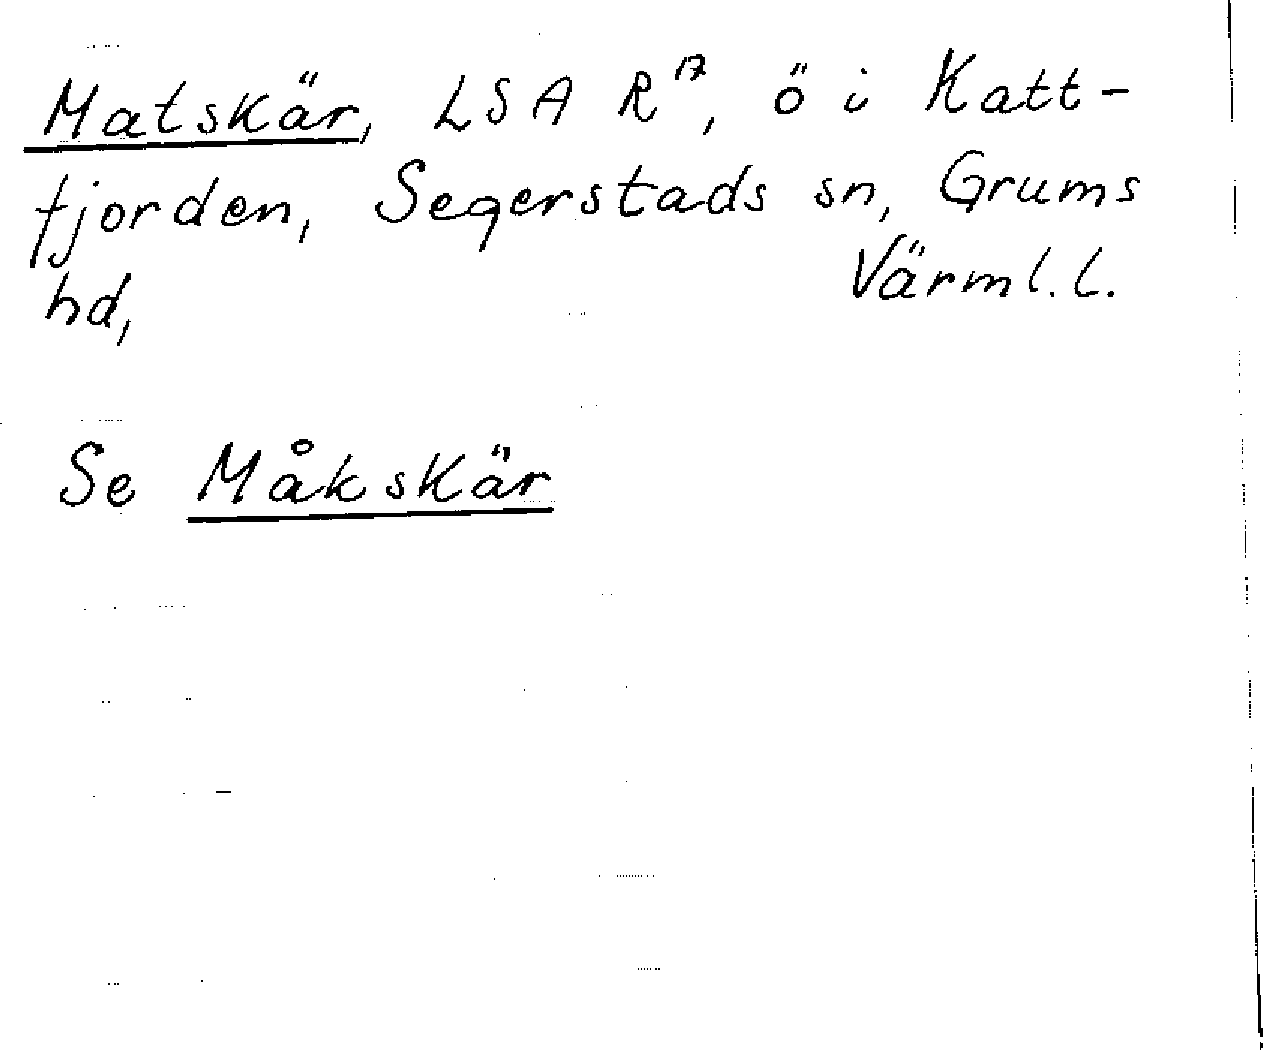 Matskär, LSA R¹⁷, ö i Katt-
fjorden, Segerstads sn, Grums
hd, Värml. l.
Se Måkskär